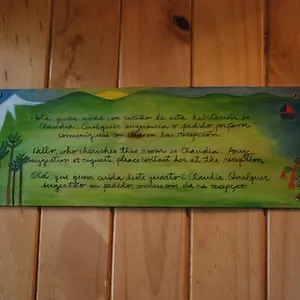 Hola, quien cuida con cariño de esta habitación es
Claudia. Cualquier sugerencia o pedido, porfavor
comuniquese con ella en la recepción.
Hello, who cherishes this room is Claudia. Any
suggestion or request, please contact her at the reception.
Olá, que quem cuida deste quarto é Claudia. Qualquer
sugestão ou pedido, converse com ela na recepção.